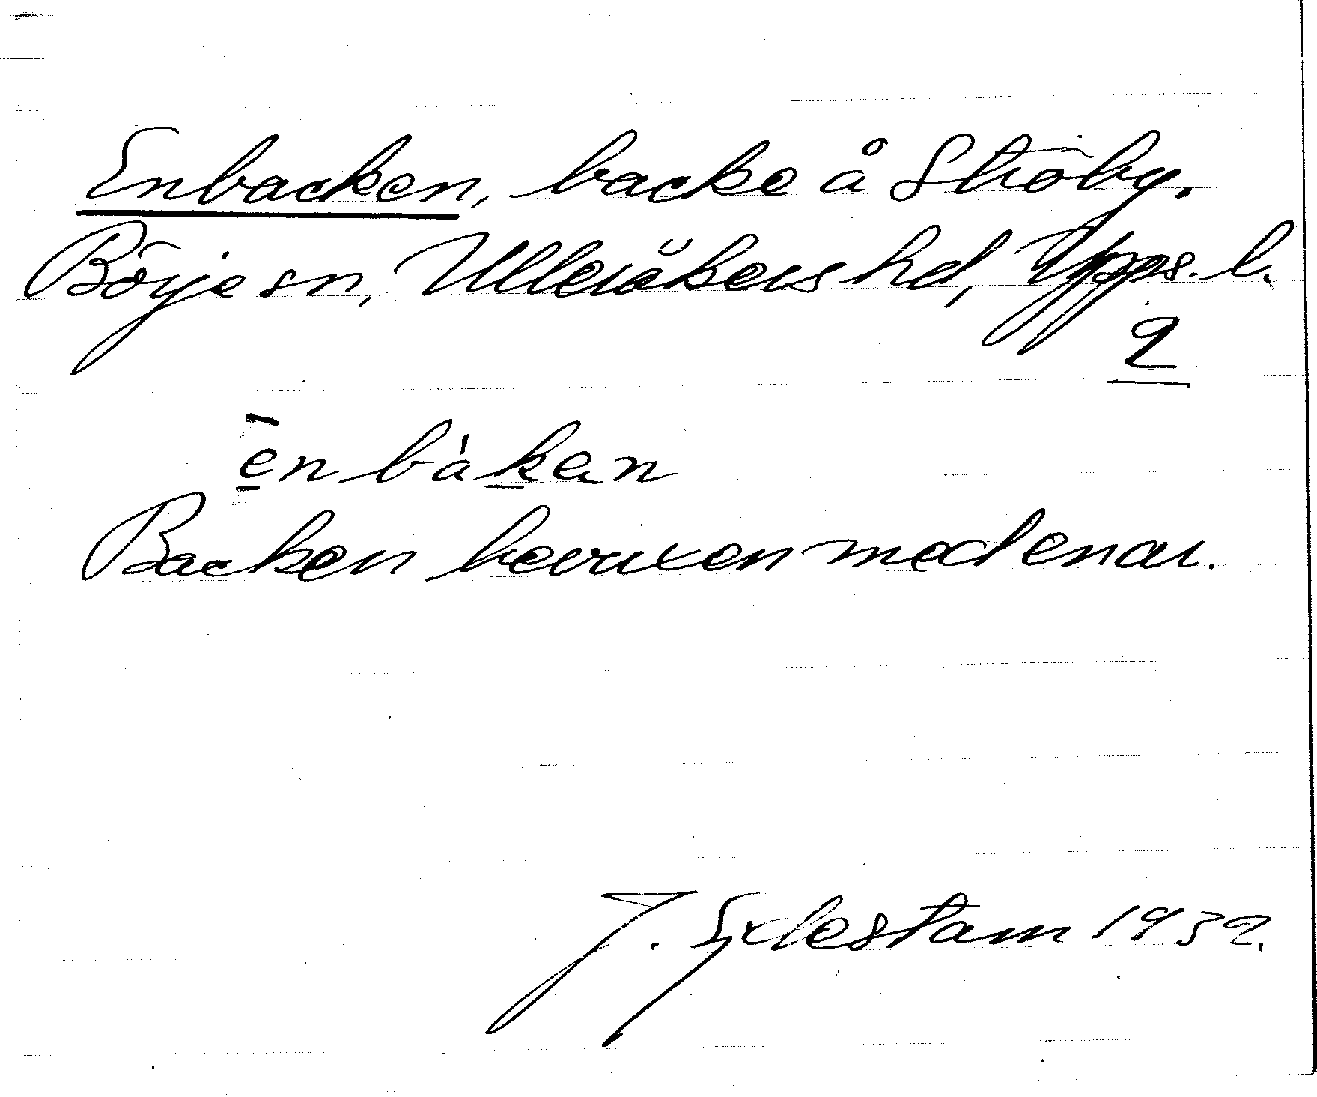 Enbacken, backe å Ströby.
Börje sn, Ulleråkers hd, Upps. l.
2
ē̠n bàk̠en
Backen bevuxen med enar.
J. Eylestam 1932.